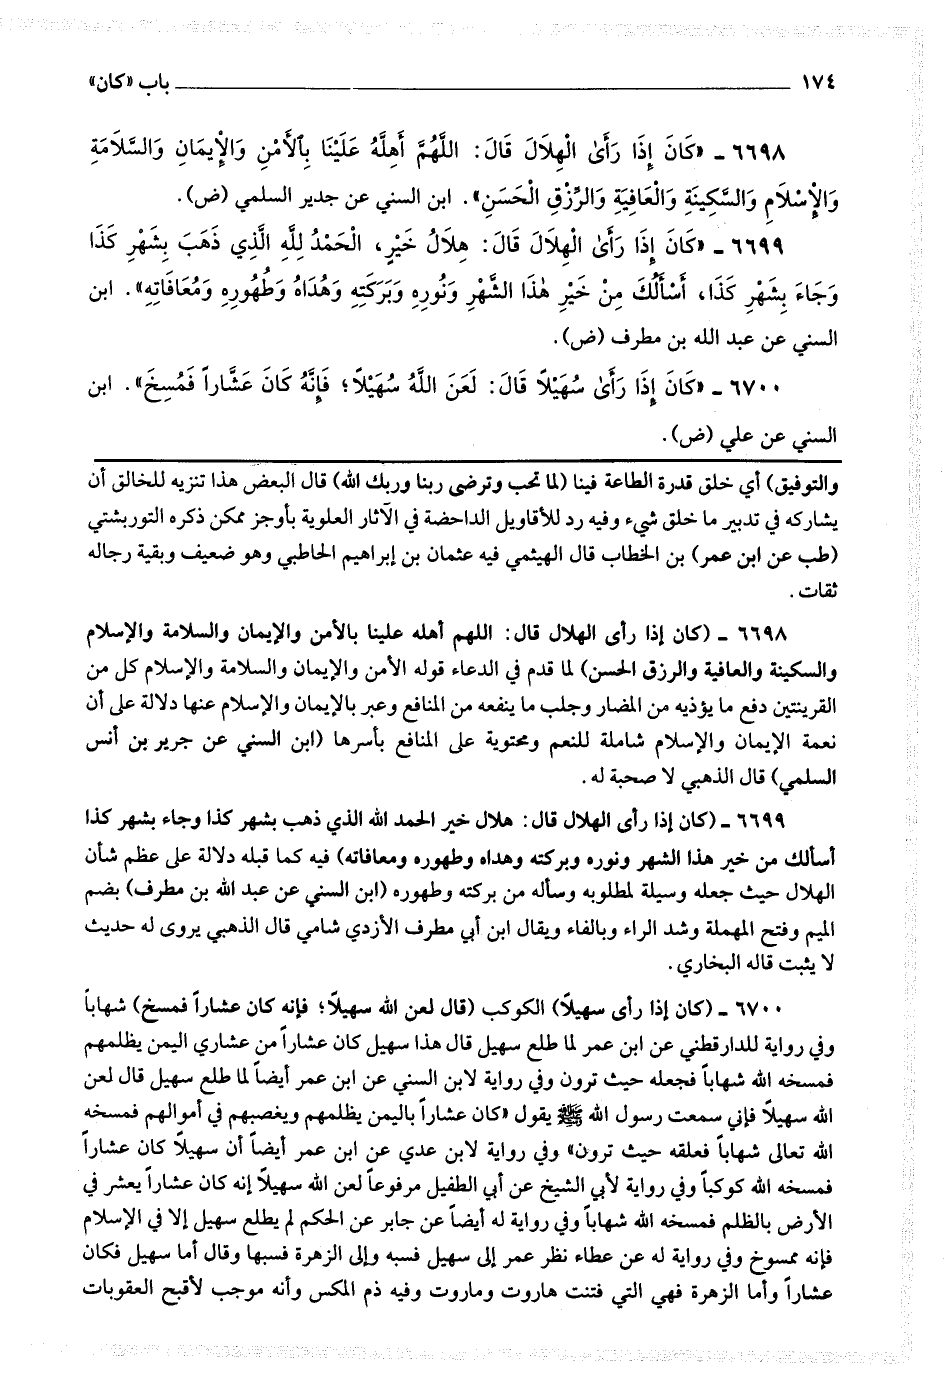 ١٧٤ باب «كان»
٦٦٩٨ ـ «كَانَ إِذَا رَأَىٰ الْهِلَالَ قَالَ: اللَّهُمَّ أَهِلَّهُ عَلَيْنَا بِالْأَمْنِ وَالْإِيمَانِ وَالسَّلَامَةِ
وَالْإِسْلَامِ وَالسَّكِينَةِ وَالْعَافِيَةِ وَالرِّزْقِ الْحَسَنِ». ابن السني عن جدير السلمي (ض).
٦٦٩٩ ـ «كَانَ إِذَا رَأَىٰ الْهِلَالَ قَالَ: هِلَالُ خَيْرٍ، الْحَمْدُ لِلَّهِ الَّذِي ذَهَبَ بِشَهْرِ كَذَا
وَجَاءَ بِشَهْرِ كَذَا، أَسْأَلُكَ مِنْ خَيْرِ هٰذَا الشَّهْرِ وَنُورِهِ وَبَرَكَتِهِ وَهُدَاهُ وَطُهُورِهِ وَمُعَافَاتِهِ». ابن
السني عن عبد الله بن مطرف (ض).
٦٧٠٠ ـ «كَانَ إِذَا رَأَىٰ سُهَيْلًا قَالَ: لَعَنَ اللَّهُ سُهَيْلًا؛ فَإِنَّهُ كَانَ عَشَّاراً فَمُسِخَ». ابن
السني عن علي (ض).
والتوفيق) أي خلق قدرة الطاعة فينا (لما تحب وترضى ربنا وربك الله) قال البعض هذا تنزيه للخالق أن
يشاركه في تدبير ما خلق شيء وفيه رد للأقاويل الداحضة في الآثار العلوية بأوجز ممكن ذكره التوربشتي
(طب عن ابن عمر) بن الخطاب قال الهيثمي فيه عثمان بن إبراهيم الحاطبي وهو ضعيف وبقية رجاله
ثقات.
٦٦٩٨ ـ (كان إذا رأى الهلال قال: اللهم أهله علينا بالأمن والإيمان والسلامة والإسلام
والسكينة والعافية والرزق الحسن) لما قدم في الدعاء قوله الأمن والإيمان والسلامة والإسلام كل من
القرينتين دفع ما يؤذيه من المضار وجلب ما ينفعه من المنافع وعبر بالإيمان والإسلام عنها دلالة على أن
نعمة الإيمان والإسلام شاملة للنعم ومحتوية على المنافع بأسرها (ابن السني عن جرير بن أنس
السلمي) قال الذهبي لا صحبة له.
٦٦٩٩ ـ (كان إذا رأى الهلال قال: هلال خير الحمد الله الذي ذهب بشهر كذا وجاء بشهر كذا
أسألك من خير هذا الشهر ونوره وبركته وهداه وطهوره ومعافاته) فيه كما قبله دلالة على عظم شأن
الهلال حيث جعله وسيلة لمطلوبه وسأله من بركته وطهوره (ابن السني عن عبد الله بن مطرف) بضم
الميم وفتح المهملة وشد الراء وبالفاء ويقال ابن أبي مطرف الأزدي شامي قال الذهبي يروى له حديث
لا يثبت قاله البخاري.
٦٧٠٠ ـ (كان إذا رأى سهيلاً) الكوكب (قال لعن الله سهيلاً؛ فإنه كان عشاراً فمسخ) شهاباً
وفي رواية للدارقطني عن ابن عمر لما طلع سهيل قال هذا سهيل كان عشاراً من عشاري اليمن يظلمهم
فمسخه الله شهاباً فجعله حيث ترون وفي رواية لابن السني عن ابن عمر أيضاً لما طلع سهيل قال لعن
الله سهيلاً فإني سمعت رسول الله ﷺ يقول «كان عشاراً باليمن يظلمهم ويغصبهم في أموالهم فمسخه
الله تعالى شهاباً فعلقه حيث ترون» وفي رواية لابن عدي عن ابن عمر أيضاً أن سهيلاً كان عشاراً
فمسخه الله كوكباً وفي رواية لأبي الشيخ عن أبي الطفيل مرفوعاً لعن الله سهيلاً إنه كان عشاراً يعشر في
الأرض بالظلم فمسخه الله شهاباً وفي رواية له أيضاً عن جابر عن الحكم لم يطلع سهيل إلا في الإسلام
فإنه ممسوخ وفي رواية له عن عطاء نظر عمر إلى سهيل فسبه وإلى الزهرة فسبها وقال أما سهيل فكان
عشاراً وأما الزهرة فهي التي فتنت هاروت وماروت وفيه ذم المكس وأنه موجب لأقبح العقوبات